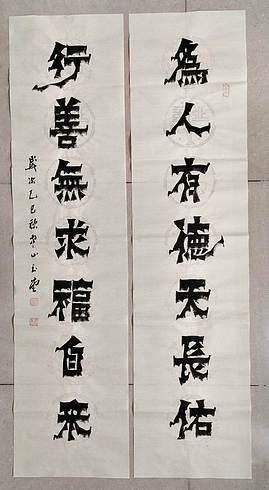 為人有德天長佑
行善無求福自來
歲次乙巳秋